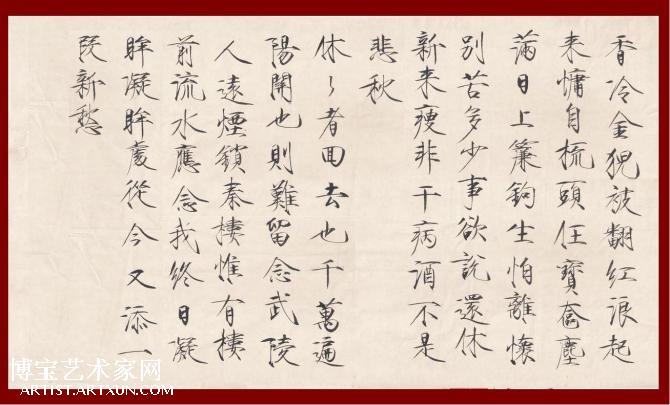 香冷金猊被翻紅浪起
来慵自梳頭任寶奩塵
滿日上簾鉤生怕離懷
别苦多少事欲說還休
新来瘦非干病酒不是
悲秋
休々者回去也千萬遍
陽関也則難留念武陵
人遠煙鎖秦樓惟有樓
前流水應念我終日凝
眸凝眸處從今又添一
段新愁
博宝艺术家网
ARTIST.ARTXUN.COM